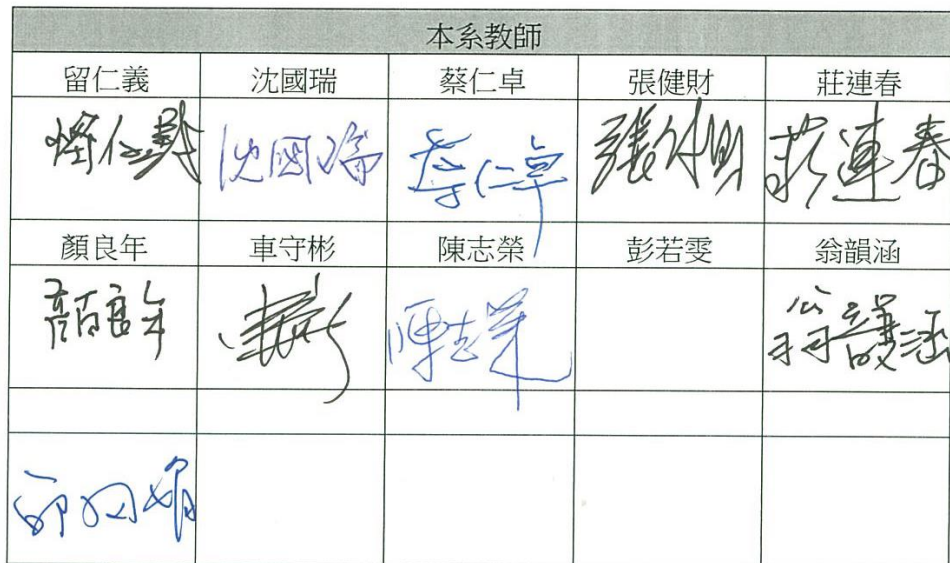 本系教師
留仁義 沈國瑞 蔡仁卓 張健財 莊連春
沈國瑞 蔡仁卓 莊連春
顏良年 車守彬 陳志榮 彭若雯 翁韻涵
顏良年 陳志榮 翁韻涵